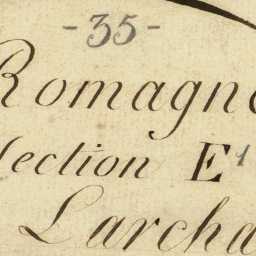 - 35 -
Romagne
lection E 1
Larcha